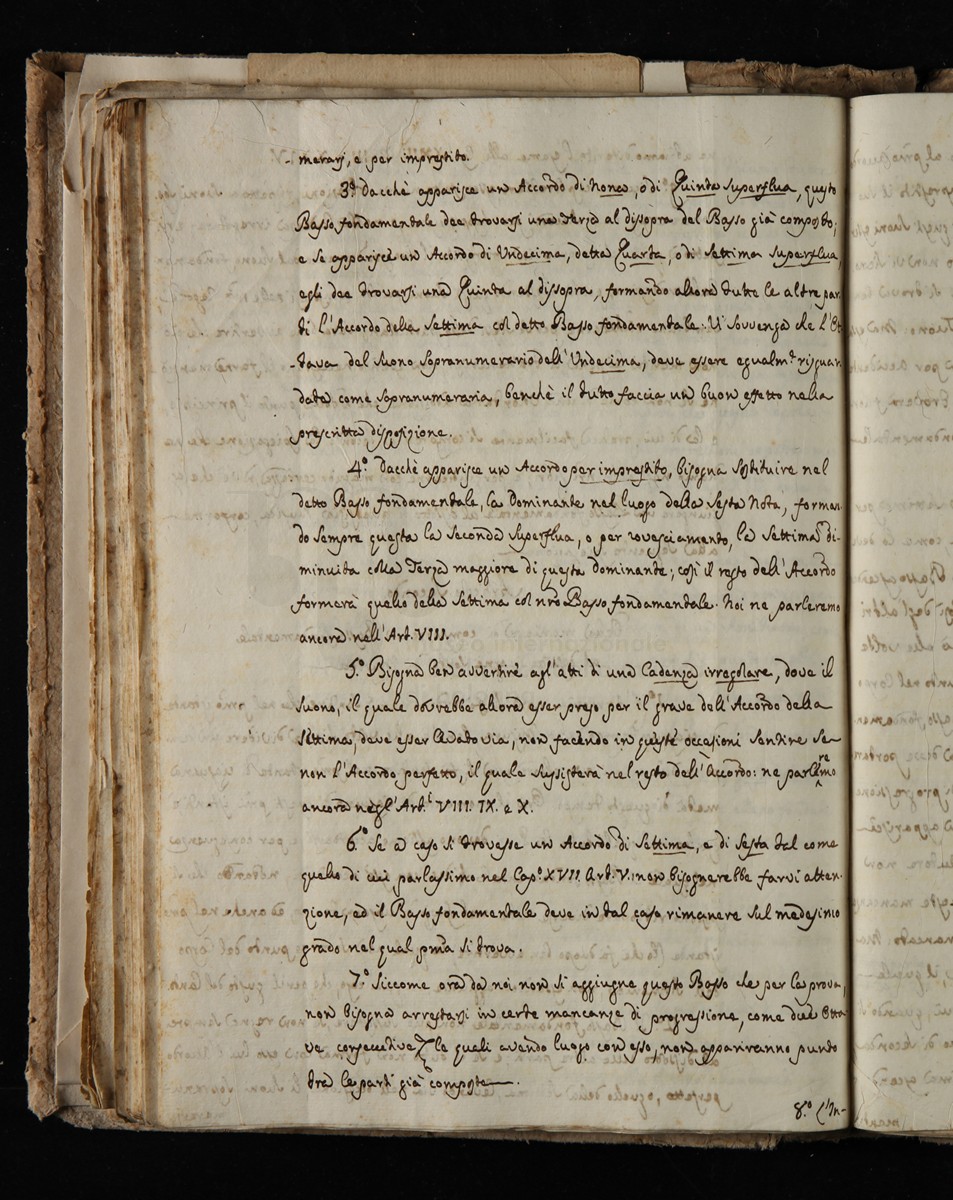 -merarj, e per imprestito.
3.º Dacchè apparisce un Accordo di Nona, o di Quinta superflua, questo
Basso fondamentale dee trovarsi una Terza al dissopra del Basso già composto;
e se apparisce un Accordo di Undecima, detta Quarta, o di Settima superflua,
egli dee trovarsi una Quinta al dissopra, formando allora tutte le altre par-
ti l'Accordo della Settima col detto Basso fondamentale. Vi sovvenga che l'Ot
-tava del Suono Sopranumerario dell'Undecima, deve essere egualm.te risguar
data come sopranumeraria, benchè il tutto faccia un buon effetto nella
prescritta disposizione.
4.º Dacchè apparisce un Accordo per imprestito, bisogna sostituire nel
detto Basso fondamentale, la Dominante nel luogo della sesta Nota, forman
do sempre questa la seconda superflua, o per rovesciamento, la settima di-
minuita colla Terza maggiore di questa Dominante; così il resto dell'Accordo
formerà quello della settima col nro Basso fondamentale. Noi ne parleremo
ancora nell'Art. VIII.
5.º Bisogna ben avvertire agl'atti di una Cadenza irregolare, dove il
Suono, il quale dovrebbe allora esser preso per il grave dell'Accordo della
settima, deve esser levato via, non facendo in queste occasioni sentire se-
non l'Accordo perfetto, il quale sussisterà nel resto dell'Accordo: ne parleremo
ancora negl'Art.i VIII. IX. e X.
6.º Se a caso si trovasse un Accordo di Settima, e di Sesta tal come
quello di cui parlassimo nel Cap.º XVII. Art. V. non bisognerebbe farvi atten-
zione, ed il Basso fondamentale deve in tal caso rimanere sul medesimo
grado nel qual pma si trova.
7.º Siccome ora da noi non si aggiugne questo Basso che per la prova,
non bisogna arrestarsi in certe mancanze di progressione, come due Otta
ve consecutive le quali avendo luogo con esso, non appariranno punto
tra le parti già composte.
8.º L'In-